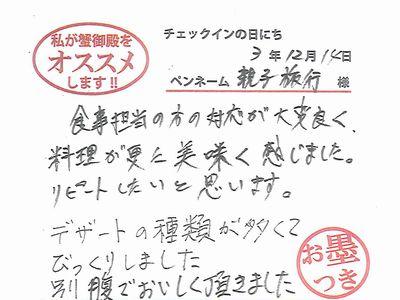 私が蟹御殿を
オススメ
します!!
チェックインの日にち
3年12月14日
ペンネーム 親子旅行 様
食事担当の方の対応が大変良く、
料理が更に美味く感じました。
リピートしたいと思います。
デザートの種類が多くて
びっくりしました
別腹でおいしく頂きました
お墨
つき